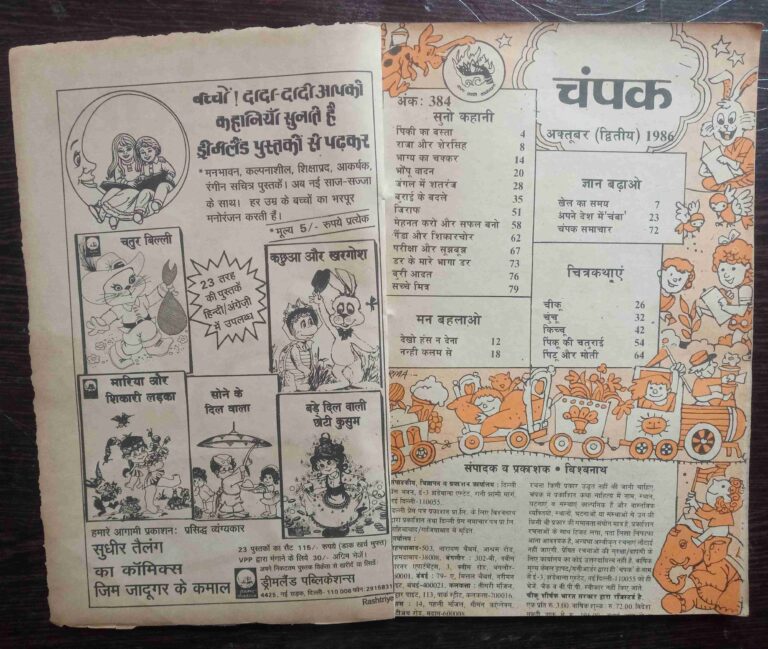 बच्चों! दादा-दादी आपको
कहानियाँ सुनाते हैं
ड्रीमलैंड पुस्तकों से पढ़कर
*मनभावन, कल्पनाशील, शिक्षाप्रद, आकर्षक,
रंगीन सचित्र पुस्तकें। अब नई साज-सज्जा
के साथ। हर उम्र के बच्चों का भरपूर
मनोरंजन करती हैं।
*मूल्य 5/- रुपये प्रत्येक
चतुर बिल्ली
23 तरह
की पुस्तकें
हिन्दी/अंग्रेज़ी
में उपलब्ध
कछुआ और खरगोश
मारिया और
शिकारी लड़का
सोने के
दिल वाला
बड़े दिल वाली
छोटी कुसुम
हमारे आगामी प्रकाशन: प्रसिद्ध व्यंग्यकार
सुधीर तैलंग
का कॉमिक्स
जिम जादूगर के कमाल
23 पुस्तकों का सैट 115/- रुपये (डाक खर्च मुफ्त)
VPP द्वारा मंगाने के लिये 30/- अग्रिम भेजें।
अपने निकटतम पुस्तक विक्रेता से खरीदें या लिखें।
ड्रीमलैंड पब्लिकेशन्स
4425, नई सड़क, दिल्ली- 110 006 फोन 2915831
Rashtriya
चंपक
अक्तूबर (द्वितीय) 1986
अंक: 384
सुनो कहानी
पिंकी का बस्ता 4
राजा और शेरसिंह 8
भाग्य का चक्कर 14
भोंपू वादन 20
जंगल में शतरंज 28
बुराई के बदले 35
जिराफ 51
मेहनत करो और सफल बनो 58
गैंडा और शिकारचोर 62
परीक्षा और सूझबूझ 67
डर के मारे भागा डर 73
बुरी आदत 76
सच्चे मित्र 79
मन बहलाओ
देखो हंस न देना 12
नन्ही कलम से 18
ज्ञान बढ़ाओ
खेल का समय 7
अपने देश में 'चंबा' 23
चंपक समाचार 72
चित्रकथाएं
चीकू 26
चुंचू 32
किच्चू 42
पिकू की चतुराई 54
पिंटू और मोती 64
संपादक व प्रकाशक • विश्वनाथ
संपादकीय, विज्ञापन व प्रकाशन कार्यालय: दिल्ली
प्रेस भवन, ई-3 झंडेवाला एस्टेट, रानी झांसी मार्ग,
नई दिल्ली-110055.
दिल्ली प्रेस पत्र प्रकाशन प्रा.लि. के लिए विश्वनाथ
द्वारा प्रकाशित तथा दिल्ली प्रेस समाचार पत्र प्रा.लि.